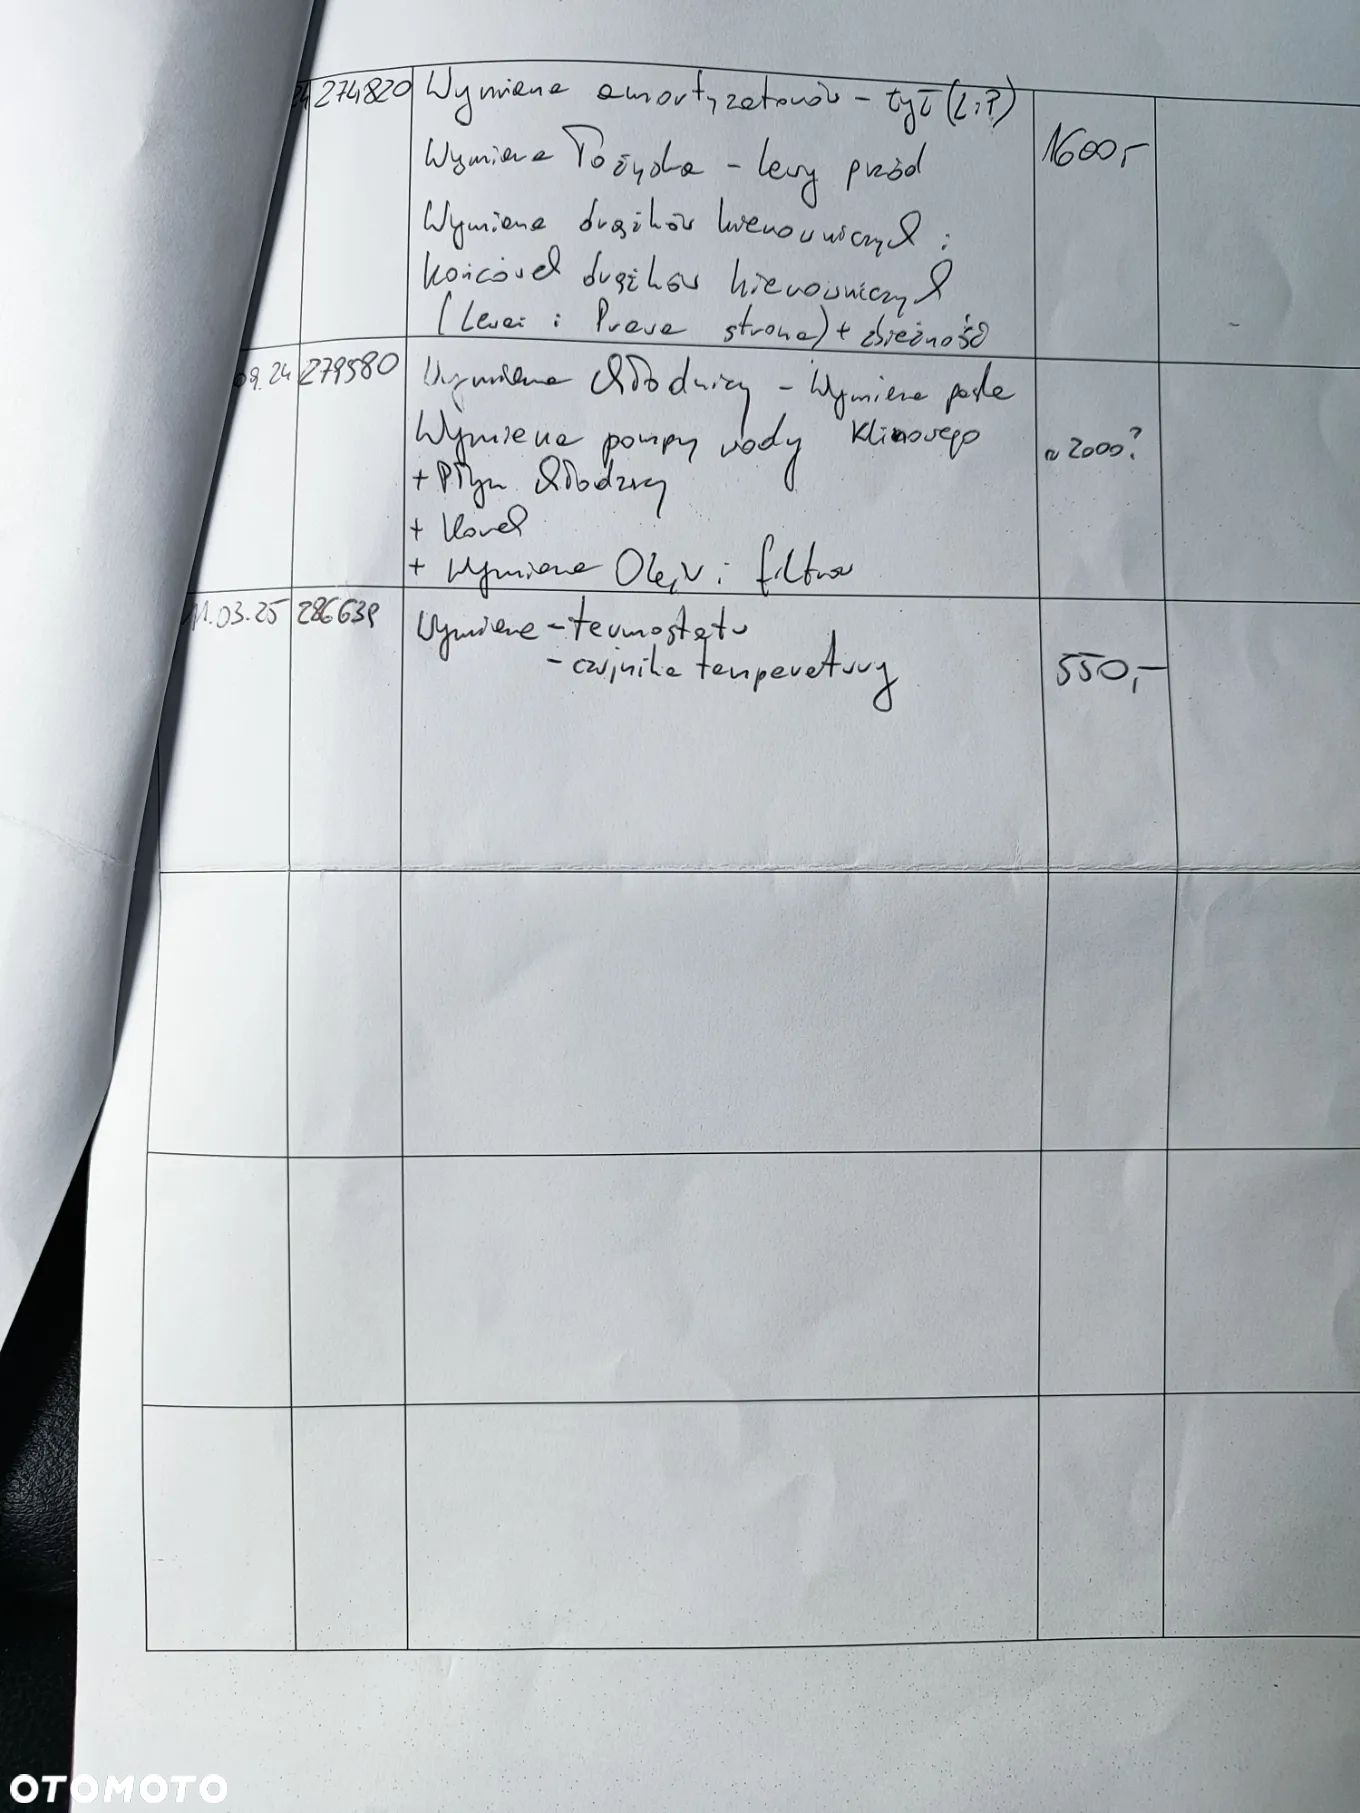 24 274820 Wymiana amortyzatorów - tył (L i P)
Wymiana Łożyska - lewy przód 1600,-
Wymiana drążków kierowniczych i
końcówek drążków kierowniczych
(Lewa i Prawa strona) + zbieżność
09.24 279580 Wymiana Chłodnicy - Wymiana paska
Wymiana pompy wody klinowego ~ 2000?
+ Płyn Chłodzący
+
+ Wymiana Oleju i filtrów
11.03.25 286639 Wymiana - termostatu
- czujnika temperatury 550,-
OTOMOTO